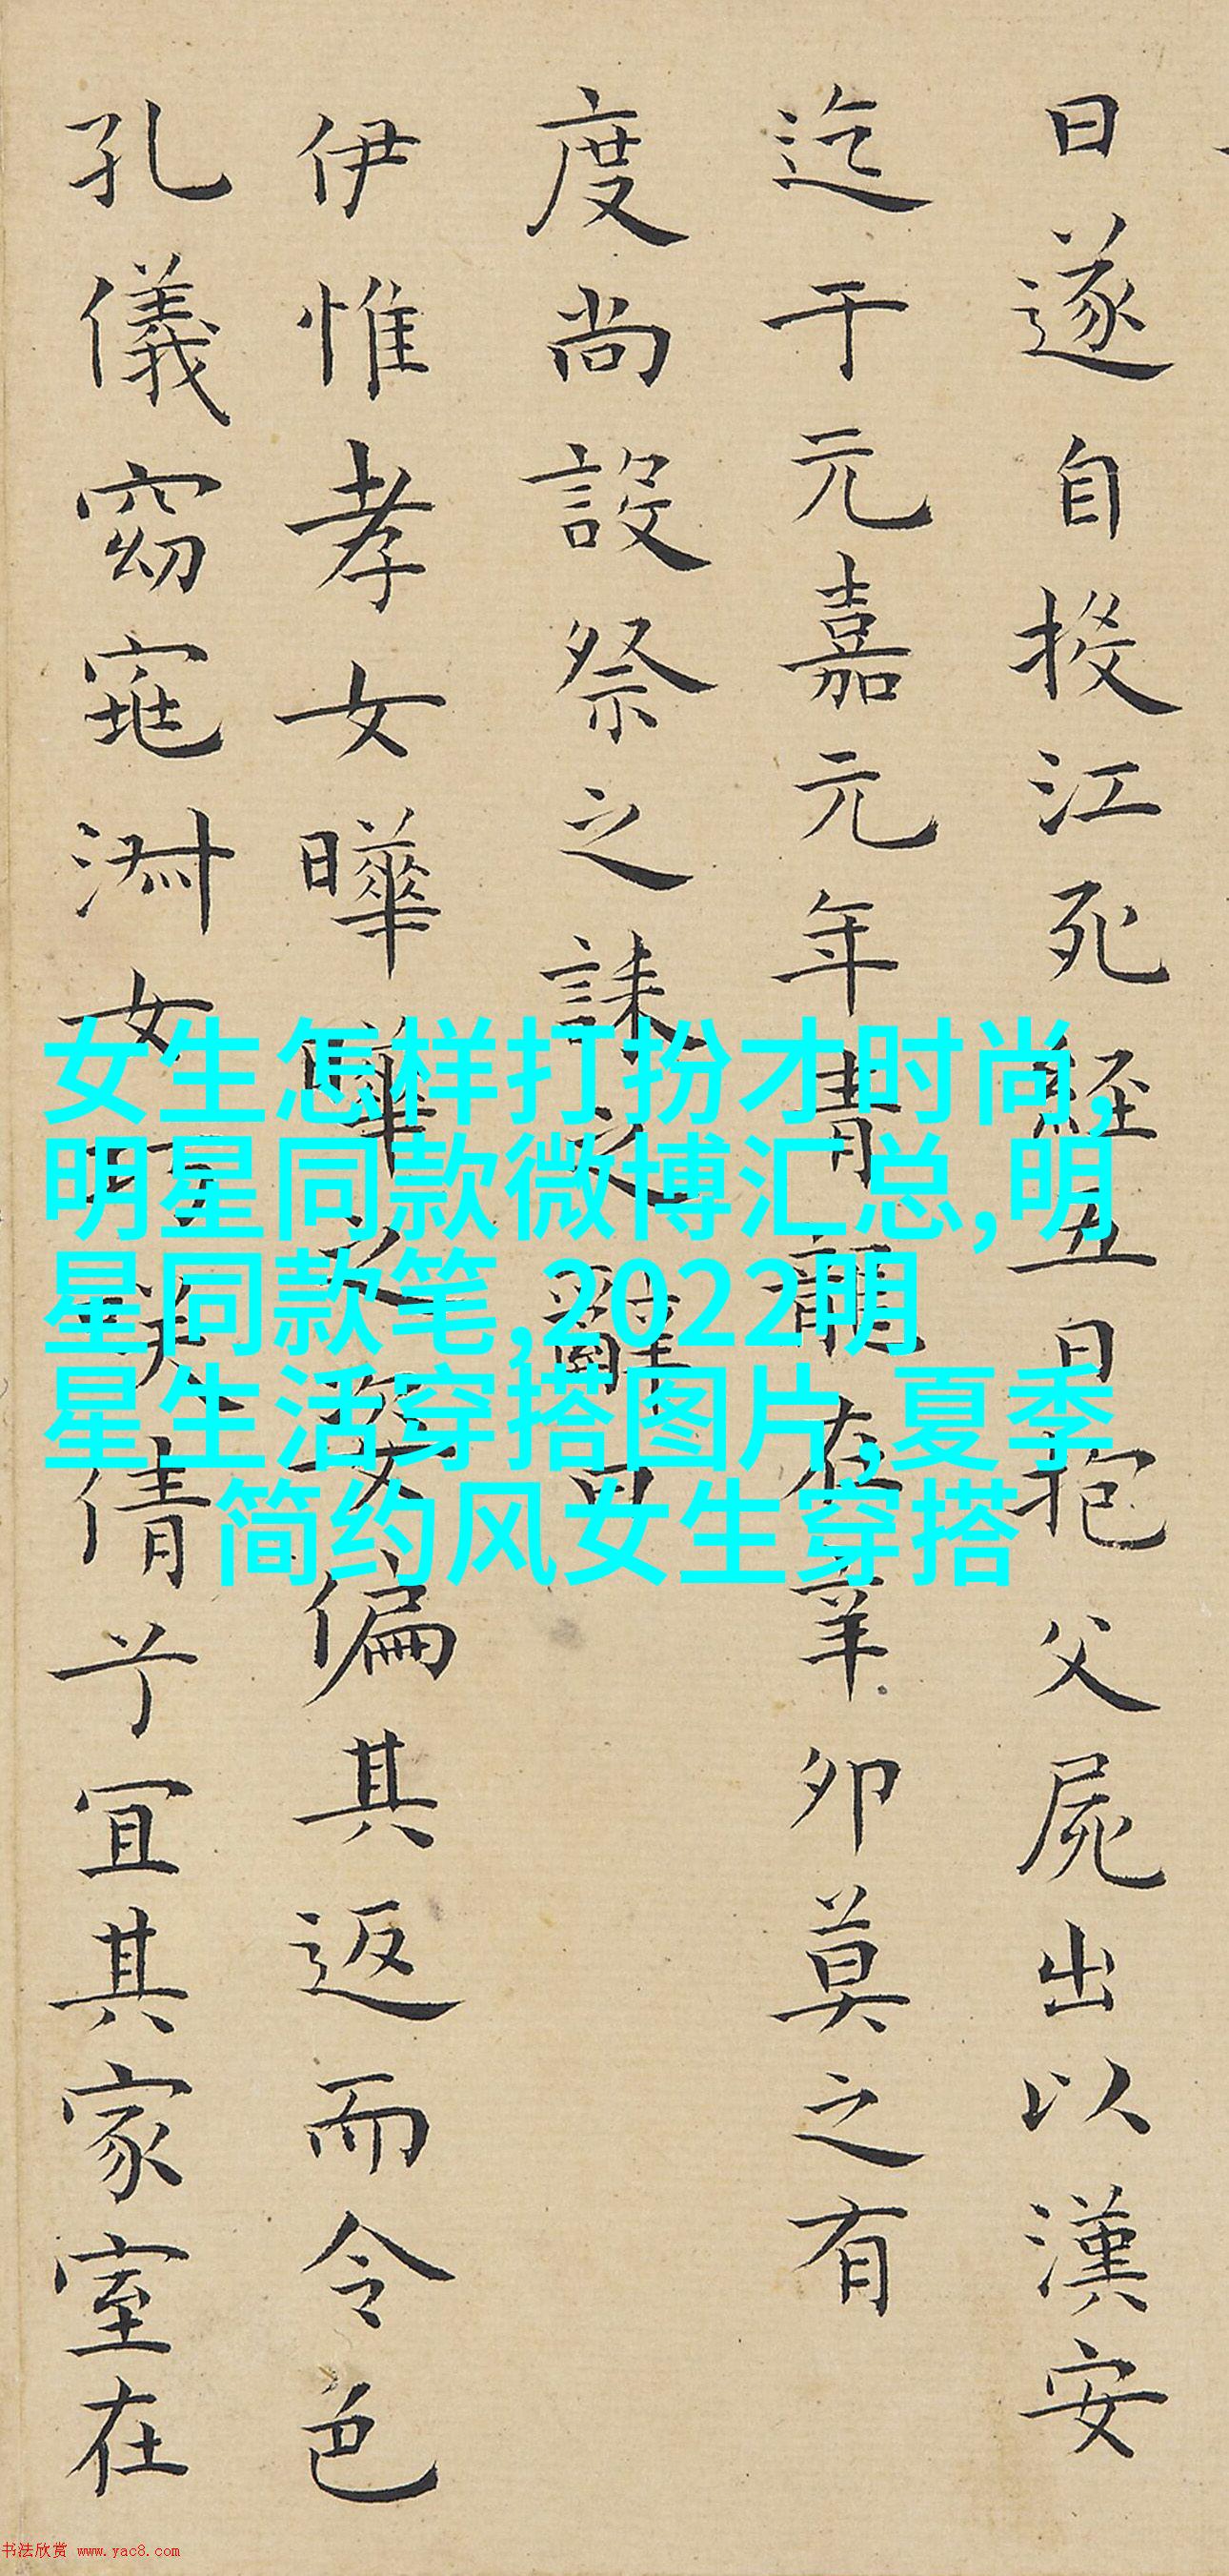 日遂自投江死經五日抱父屍出以漢安
迄于元嘉元年青龍在辛卯莫之有
度尚設祭之誄之辭曰
伊惟孝女曄曄之姿偏其返而令色
孔儀窈窕淑女巧笑倩兮宜其家室在
女生怎样打扮才时尚,
明星同款微博汇总,明
星同款笔,2022明
星生活穿搭图片,夏季
简约风女生穿搭
书法欣赏 www.yac8.com